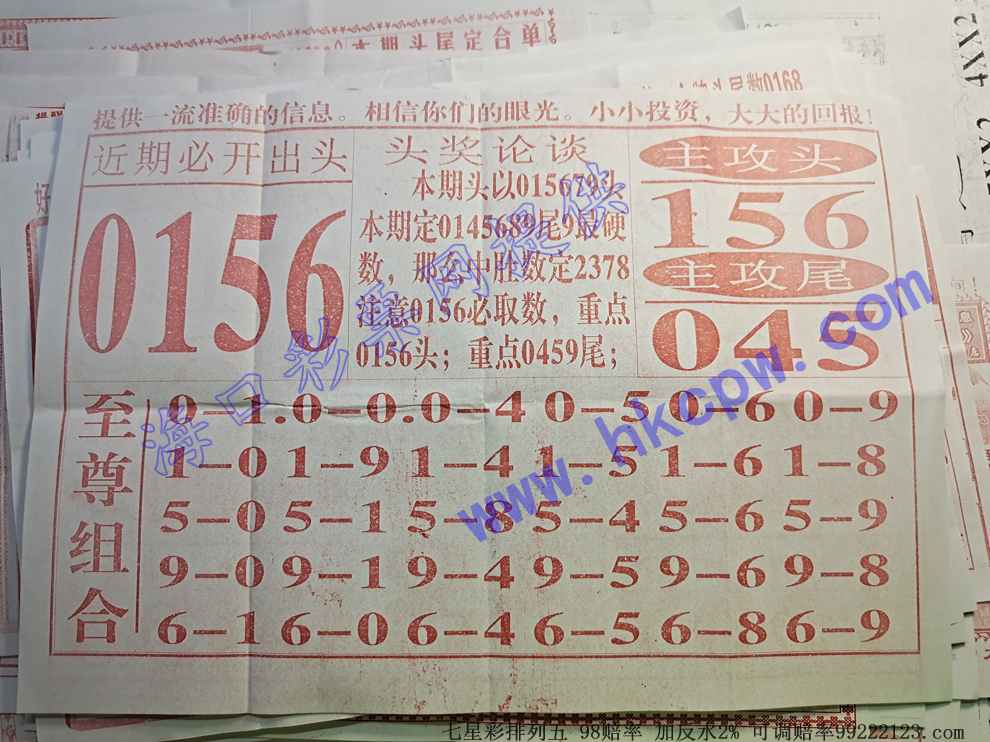 本期头尾定合单
提供一流准确的信息。相信你们的眼光。小小投资，大大的回报！
近期必开出头
0156
头奖论谈
本期头以015679头
本期定0145689尾9最硬
数，那么中肚数定2378
注意0156必取数，重点
0156头；重点0459尾；
主攻头
156
主攻尾
045
至尊组合
0-1.0-0.0-4 0-5 0-6 0-9
1-0 1-9 1-4 1-5 1-6 1-8
5-0 5-1 5-8 5-4 5-6 5-9
9-0 9-1 9-4 9-5 9-6 9-8
6-1 6-0 6-4 6-5 6-8 6-9
海口彩票网提供
www.hkcpw.com
2XX4
XX2
七星彩排列五 98赔率 加反水2% 可调赔率99222123.com